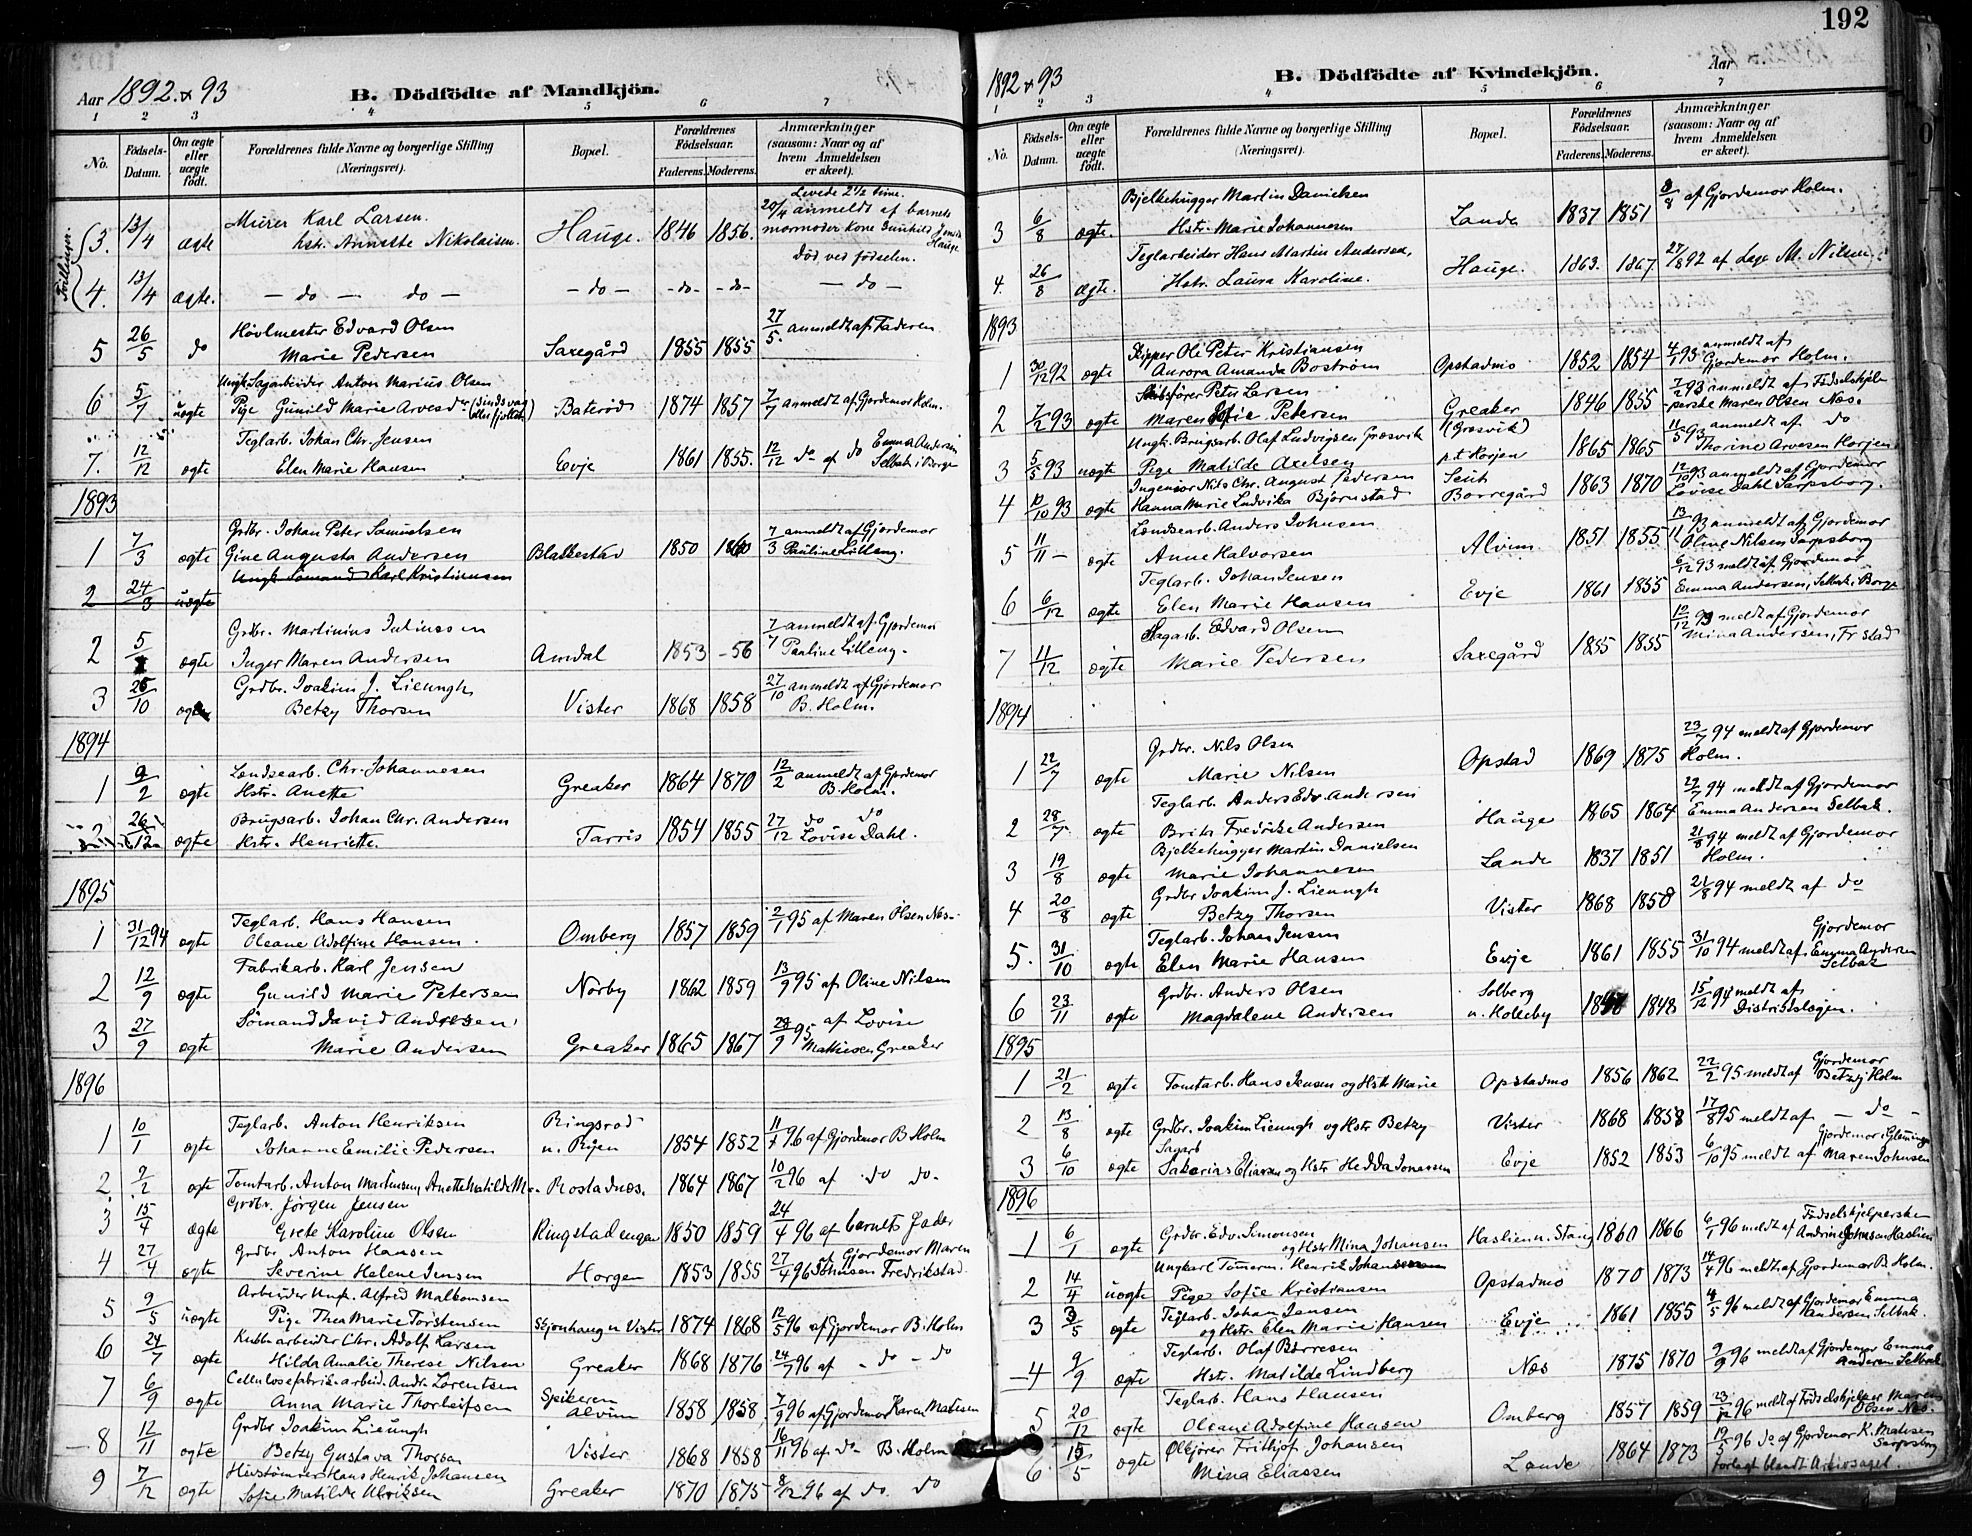 192
Aar 1892 & 93
B. Dödfödte af Mandkjön.
1 2 3 4 5 6 7
No. Födsels-Datum. Om ægte eller uægte født. Forældrenes fulde Navne og borgerlige Stilling (Næringsvei). Bopæl. Forældrenes Födselsaar. Faderens. Moderens. Anmærkninger (saasom: Naar og af hvem Anmeldelsen er skeet).
Tvillinger.
Levede 2½ time.
3. 13/4 ægte Murer Karl Larsen. Hauge. 1846 1856. 20/4 anmeldt af barnets
hstr. Annette Nikolaisen. mormoder kone Gunhild Hauge
død ved fødselen.
4. 13/4 ægte. — do — do — — do — -do- -do- — do —
5 26/5 do Høvlmester Edvard Olsen Saxegård 1855 1855 27/5. anmeldt af Faderen
Marie Pedersen
6 5/7 uægte Ungk. Sagarbeider Anton Marius Olsen
Pige Gunild Marie Arvesdr (sindsvag eller fjollet) Baterød 1874 1857 7/7 anmeldt af Gjordemor Holm.
7. 12/12 ægte Teglarb. Johan Chr. Jensen
Elen Marie Hansen Evje 1861 1855. 12/12 do af do Emma Andersen Selbak i Borge
1893
1 7/3 ægte Grdbr. Johan Peter Samuelsen
Gine Augusta Andersen Blakkestad 1850 1860 7/3 anmeldt af Gjordemor Pauline Lilleng.
2 24/3 uægte Ungk. Sømand Karl Kristiansen
2 5/ ægte Grdbr. Martinius Juliussen
Inger Maren Andersen Amdal 1853 -56 7/7 anmeldt af Gjordemor Pauline Lilleng.
3 26/10 ægte Grdbr. Joakim J. Lieungh
Betzy Thorsen Vister 1868 1858 27/10 anmeldt af Gjordemor B. Holm.
1894
1 9/2 ægte Londsearb. Chr. Johannesen
Hstr. Anette Greaker 1864 1870 12/2 anmeldt af Gjordemor B. Holm.
2 26/12 ægte Brugsarb. Johan Chr. Andersen
Hstr. Henriette. Tarris 1854 1855 27/12 do do Lovise Dahl.
1895
1 31/12 94 ægte Teglarb. Hans Hansen
Oleane Adolfine Hansen. Omberg 1857 1859 2/1 95 af Maren Olsen Næs.
2 12/9 ægte Fabrikarb. Karl Jensen
Gunild Marie Petersen Nørby 1862 1859 13/9 95 af Oline Nilsen
3 27/9 ægte Sömand David Andersen
Marie Andersen Greaker 1865 1867 28/9 95 af Lovise Mathiesen Greaker
1896
1 10/1 ægte Teglarb. Anton Henriksen Ringsrød
Johanne Emilie Pedersen u. Rijen 1854 1852 11/1 96 af Gjordemor B Holm
2 2/2 ægte Tomtarb. Anton Martinsen, Anette Matilde M. Rostadnæs. 1864 1867 10/2 96 af do do-
3 15/4 ægte Grdbr. Jørgen Jensen
Grete Karoline Olsen Ringstad engen 1850 1859 24/4 96 af barnets Fader
4 27/4 ægte Grdbr Anton Hansen
Severine Helene Jensen Horgen 1853 1855 27/4 96 af Gjordemor Maren Johnsen Fredrikstad
5 9/5 uægte Arbeider Ungk. Alfred Malkomsen
Pige Thea Marie Torstensen Skjønhaug u. Vister 1874 1868 12/5 96 af Gjordemor B. Holm
6 24/7 ægte Kubbarbeider Chr. Adolf Larsen
Hilda Amalie Therese Nilsen Greaker 1868 1876 24/7 96 af - do - do
7 6/9 ægte Cellulosefabrik-arbeid. Andr. Lorentsen
Anna Marie Thorleifsen Speikeren Alvim 1858 1858 7/9 96 af Gjordemor Karen Matisen
8 12/11 ægte Grdbr Joakim Lieungh
Betzy Gustava Thorsen Vister 1868 1858 16/11 96 af do B. Holm
9 7/12 ægte Hans Henrik Johansen
Sofie Matilde Ulriksen Greaker 1870 1875 8/12 96 af do. do
1892 & 93
B. Dödfödte af Kvindekjön.
Aar
1 2 3 4 5 6 7
No. Födsels-Datum. Om ægte eller uægte födt. Forældrenes fulde Navne og borgerlige Stilling (Næringsvei). Bopæl. Forældrenes Födselsaar. Faderens. Moderens. Anmærkninger (saasom: Naar og af hvem Anmeldelsen er skeet).
3 6/8 ægte. Bjelkehugger Martin Danielsen
Hstr. Marie Johannesen Lande 1837 1851 9/8 af Gjordemor Holm.
4. 26/8 ægte. Teglarbeider Hans Martin Andersen,
Hstr. Laura Karoline. Hauge. 1863. 1867 27/8 92 af Læge M. Nilsen
1893
1 30/12 92 ægte Skipper Ole Peter Kristiansen
Aurora Amanda Boström Opstadmo 1852 1854 4/1 93 anmeldt af Gjordemor Holm.
2 7/2 93 ægte Skibsfører Peter Larsen
Maren Sofie Petersen Greaker (Græsvik) 1846 1855 7/2 93 anmeldt af Fødselshjelperske Maren Olsen Næs.
3 5/5 93 uægte Ungk. Brugsarb. Olaf Ludvigsen Græsvik
Pige Matilde Axelsen p.t Korjen 1865 1865 11/5 93 anmeldt af do Thorine Arvesen Korjen
4 10/10 93 ægte Ingeniør Nils Chr. August Pedersen
Hanna Marie Ludvika Bjørnstad Borregård 1863 1870 12/10 93 anmeldt af Gjordemor Lovise Dahl Sarpsborg.
5 11/11 — ægte Londsearb. Anders Johnsen
Anne Halvorsen Alvim 1851 1855 13/11 93 anmeldt af Gjordemor Oline Nilsen Sarpsborg
6 6/12 ægte Teglarb. Johan Jensen
Elen Marie Hansen Evje 1861 1855 6/12 93 meldt af Gjordemor Emma Andersen, Selbak i Borge
7 11/12 ægte Sagarb. Edvard Olsen
Marie Pedersen Saxegård 1855 1855 12/12 93 meldt af Gjordemor Mina Andersen, Fr stad
1894
1 22/7 ægte Grdbr. Nils Olsen
Marie Nilsen Opstad 1869 1875 23/7 94 meldt af Gjordemor Holm.
2 28/7 ægte Teglarb. Anders Edv. Andersen
Brite Fredrikke Andersen Hauge 1865 1864 94 meldt af Gjordemor Emma Andersen Selbak.
3 19/8 ægte Bjelkehugger Martin Danielsen
Marie Johannesen Lande 1837 1851 21/8 94 meldt af Gjordemor Holm.
4 20/8 ægte Grdbr Joakim J. Lieungh
Betzy Thorsen Vister 1868 1858 21/8 94 meldt af do
5. 31/10 ægte Teglarb. Johan Jensen
Elen Marie Hansen Evje 1861 1855 31/10 94 meldt af Gjordemor Emma Andersen Selbak
6 23/11 ægte Grdbr. Anders Olsen Solberg
Magdalene Andersen u. Kolleby 1848 15/12 94 meldt af Distriktslægen.
1895
1 21/2 ægte Tomtarb. Hans Jensen og Hstr Marie Opstadmo 1856 1862 22/2 95 meldt af Gjordemor Betzy Holm
2 13/8 ægte Grdbr. Joakim Lieungh og Hstr Betzy Vister 1868 1858 17/8 95 meldt af — do —
3 6/10 ægte Sagarb Sakarias Eliasen og Hstr Hedda Jonassen Evje 1852 1853 6/10 95 meldt af Gjordemor i Glemminge Maren Johnsen
1896
1 6/1 ægte Grdbr. Edv. Simonsen
og Hstr Mina Johansen Haslien u. Stang 1860 1866 6/1 96 meldt af Fødselshjelperske Andrine Johnsen Haslien
2 14/4 uægte Ungkarl Tømerm. Henrik Johansen
Pige Sofie Kristiansen Opstadmo 1870 1873 14/4 96 meldt af Gjordemor B. Holm.
3 3/5 ægte Teglarb. Johan Jensen
og Hstr. Elen Marie Hansen Evje 1861 1855 4/5 96 meldt af Gjordemor Emma Andersen Selbak.
4 9/9 ægte Teglarb. Olaf Børresen
Hstr. Matilde Lindberg Næs 1875 1870 9/9 96 meldt af Gjordemor Emma Andersen Selbak
5 20/12 ægte Teglarb. Hans Hansen
Oleane Adolfine Hansen Omberg 1857 1859 23/12 96 meldt af Fødselshjelper Maren Olsen Næs.
6 15/5 ægte Frithjof Johansen
Mina Eliassen Lande 1864 1873 19/5 96 do af Gjordemor K. Matisen Sarpsborg
forlagt blandt Arkivsaget.